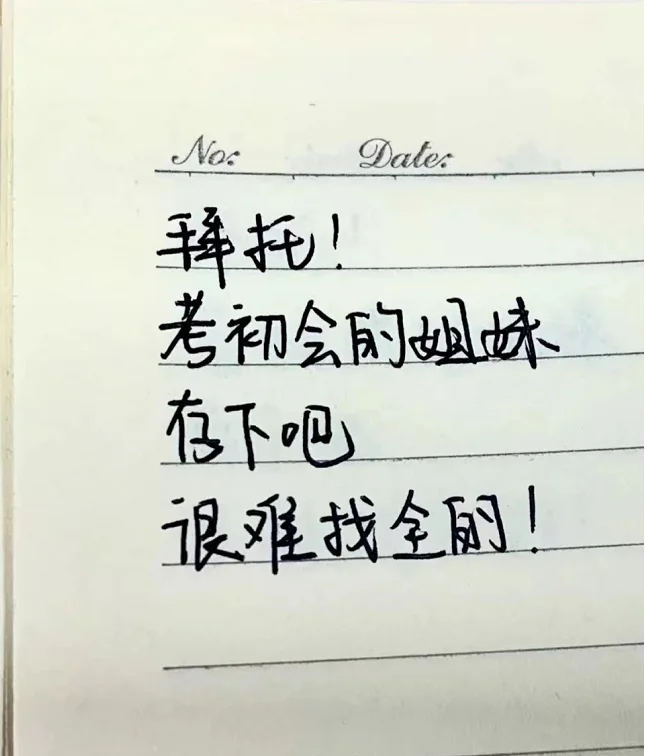 No: Date:
拜托!
考初会的姐妹
存下吧
很难找全的!